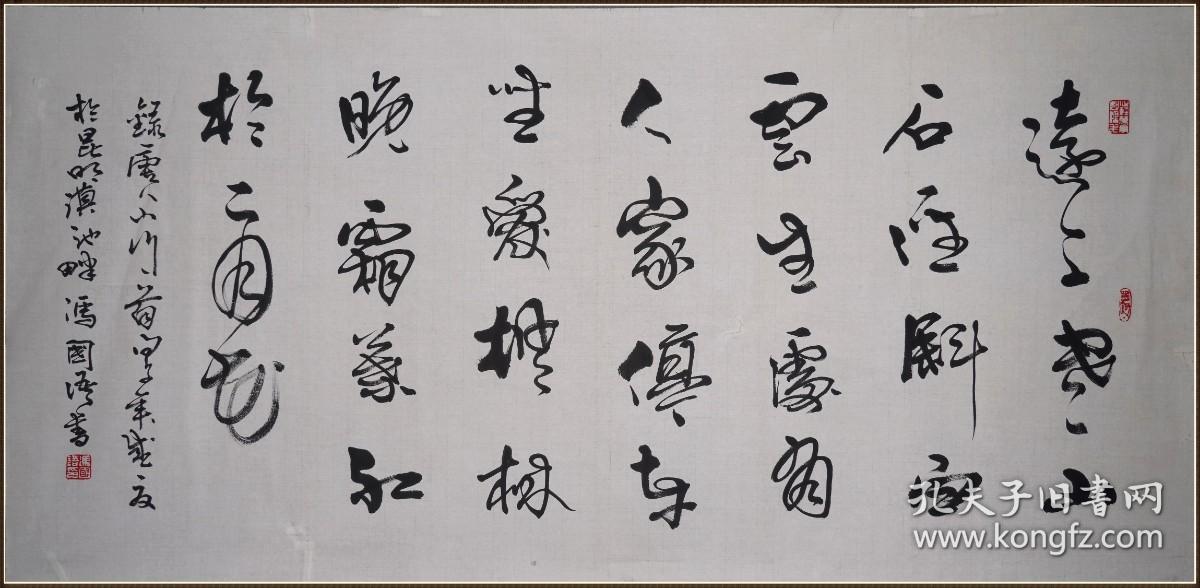 遠上寒山
石徑斜白
雲生處有
人家停車
坐愛楓林
晚霜葉紅
於二月花
錄唐人山行一首年盛夏
於昆明滇池畔馮國語書
孔夫子旧书网
www.kongfz.com